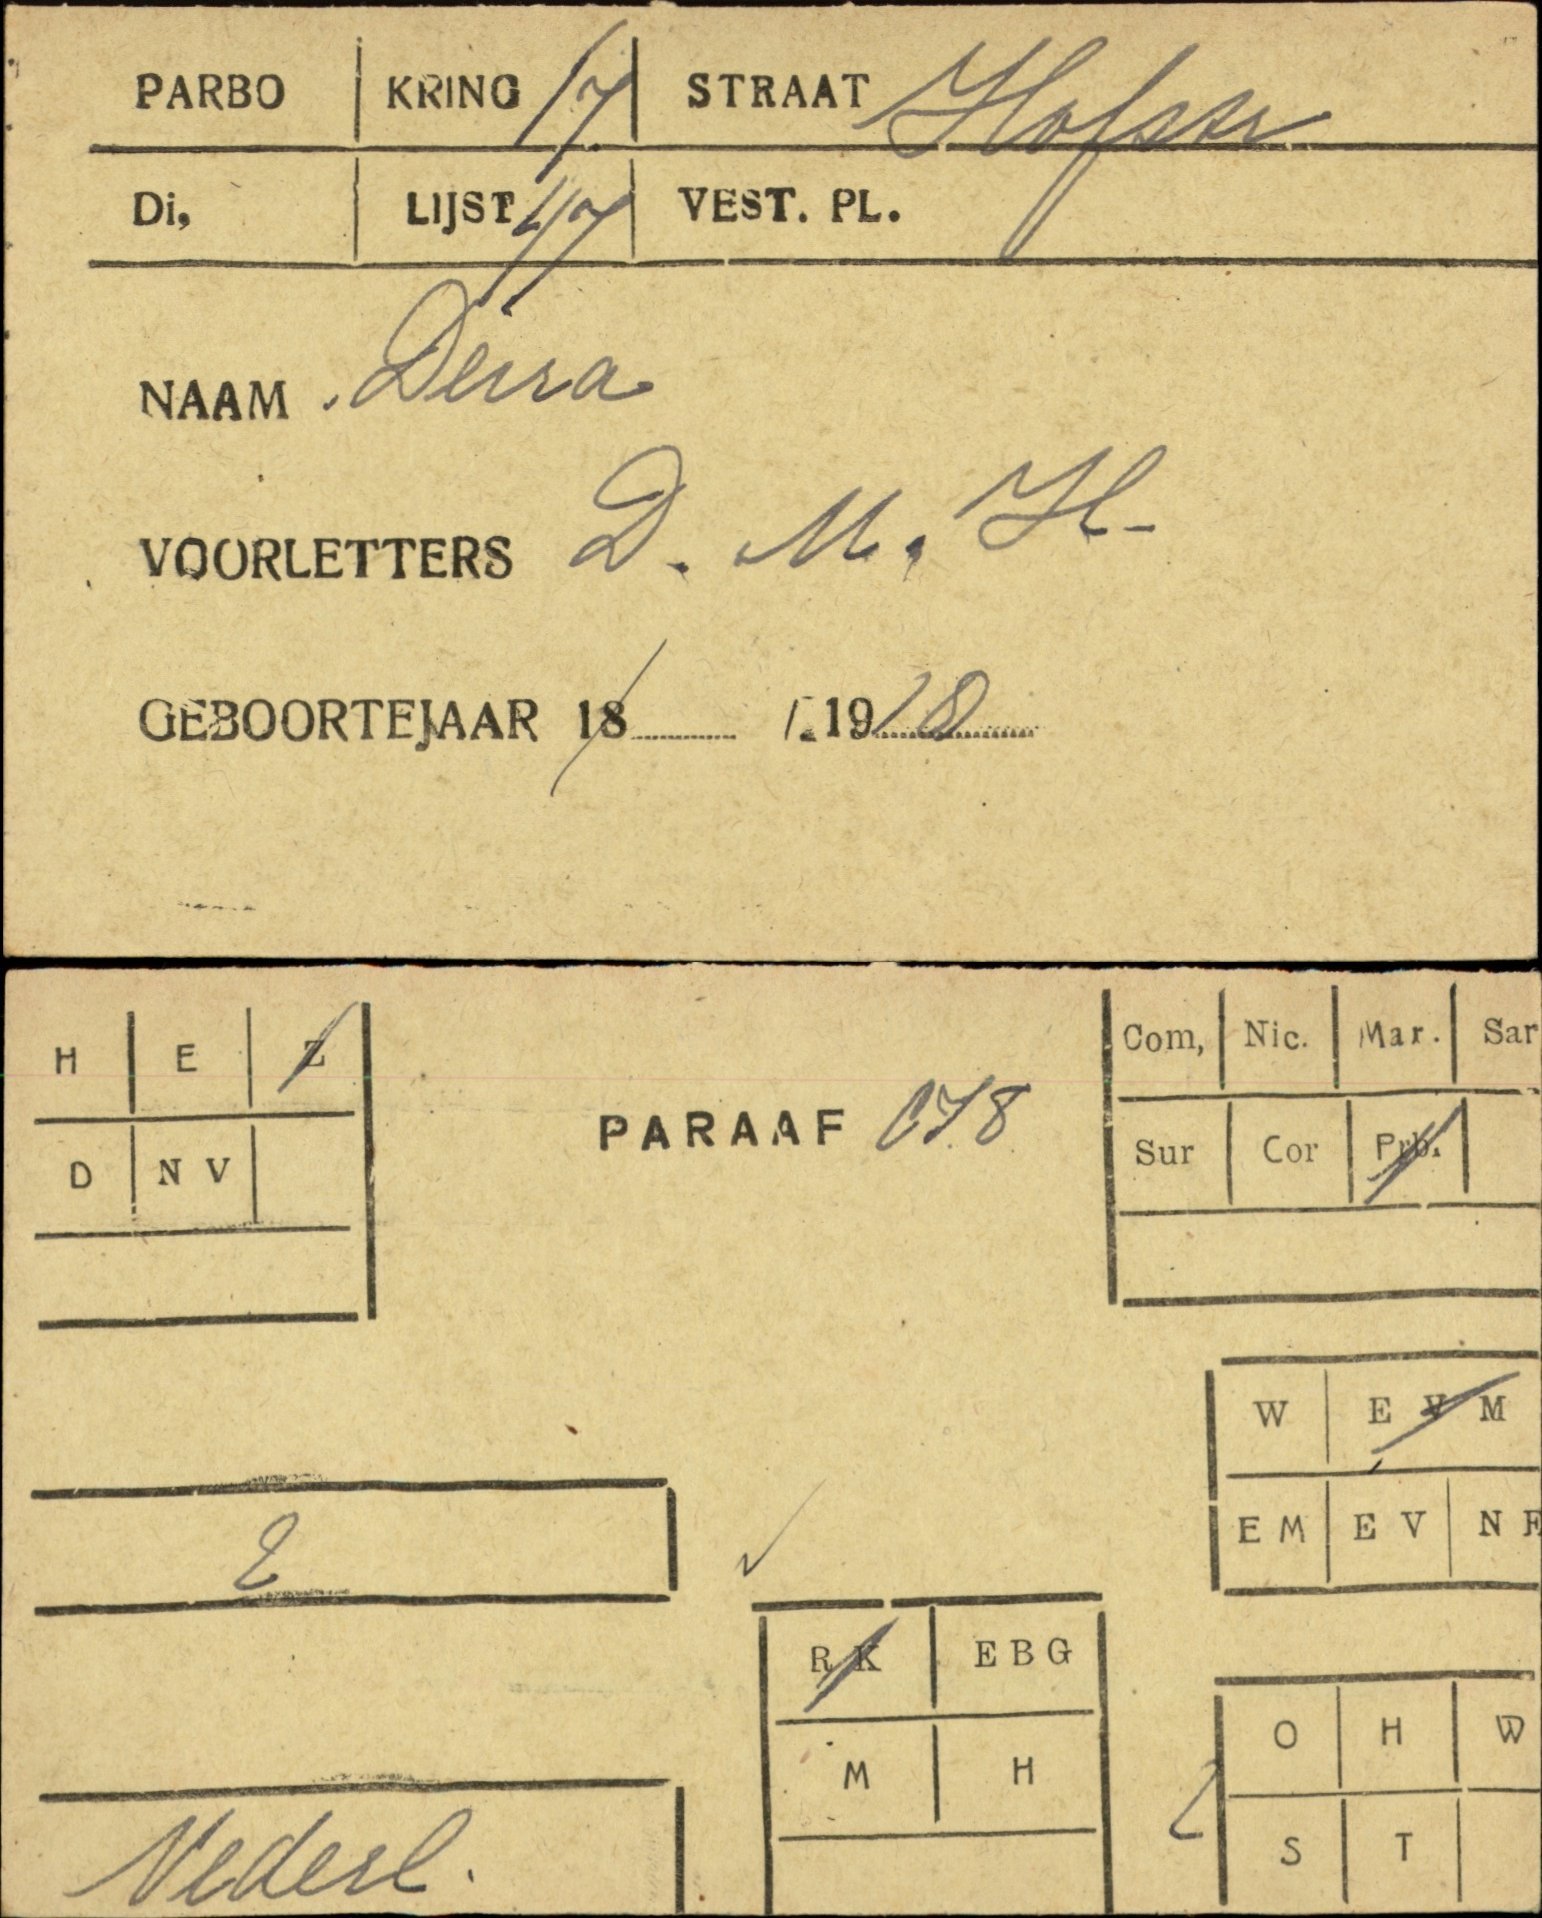 PARBO KRING 17 STRAAT Hofstr
Di, LIJST 47 VEST. PL.
NAAM Deira
VOORLETTERS D. M. H-
GEBOORTEJAAR 18 1.1918
H E Z
D N V
PARAAF
Com, Nic. Mar. Sar
Sur Cor Prb.
W E V M
E M E V N E
2
R K E B G
M H
O H W
S T
Nederl.